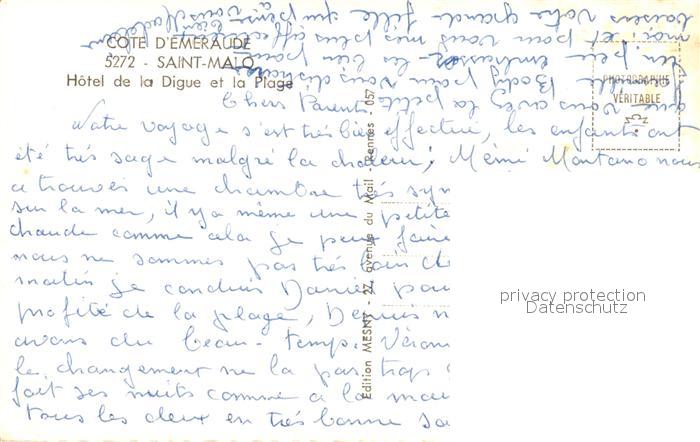 COTE D'EMERAUDE
5272 - SAINT-MALO
Hôtel de la Digue et la Plage
PHOTOGRAPHIE
VÉRITABLE
Chers Parents
Notre voyage s'est très bien effectué, les enfants ont
été très sage malgré la chaleur; Mémé Montano nous
a trouver une chambre très sym
sur la mer, il y a même une petite
chaude comme cela je peux faire
nous ne sommes pas très loin de
matin je conduis Daniel pou
profité de la plage, Depuis n
avons du beau-temps. Véron
le changement ne la pas trop
fait ses nuits comme a la mai
tous les deux en très bonne sa
que vous avez la petite
pour vous distraire
un peu embrasser-les bien pour
moi et pour vous mes plus affec
baisers votre grande fille qui pense
bien à vous Madeleine
Edition MESNY - 27, avenue du Mail - Rennes - 057
privacy protection
Datenschutz